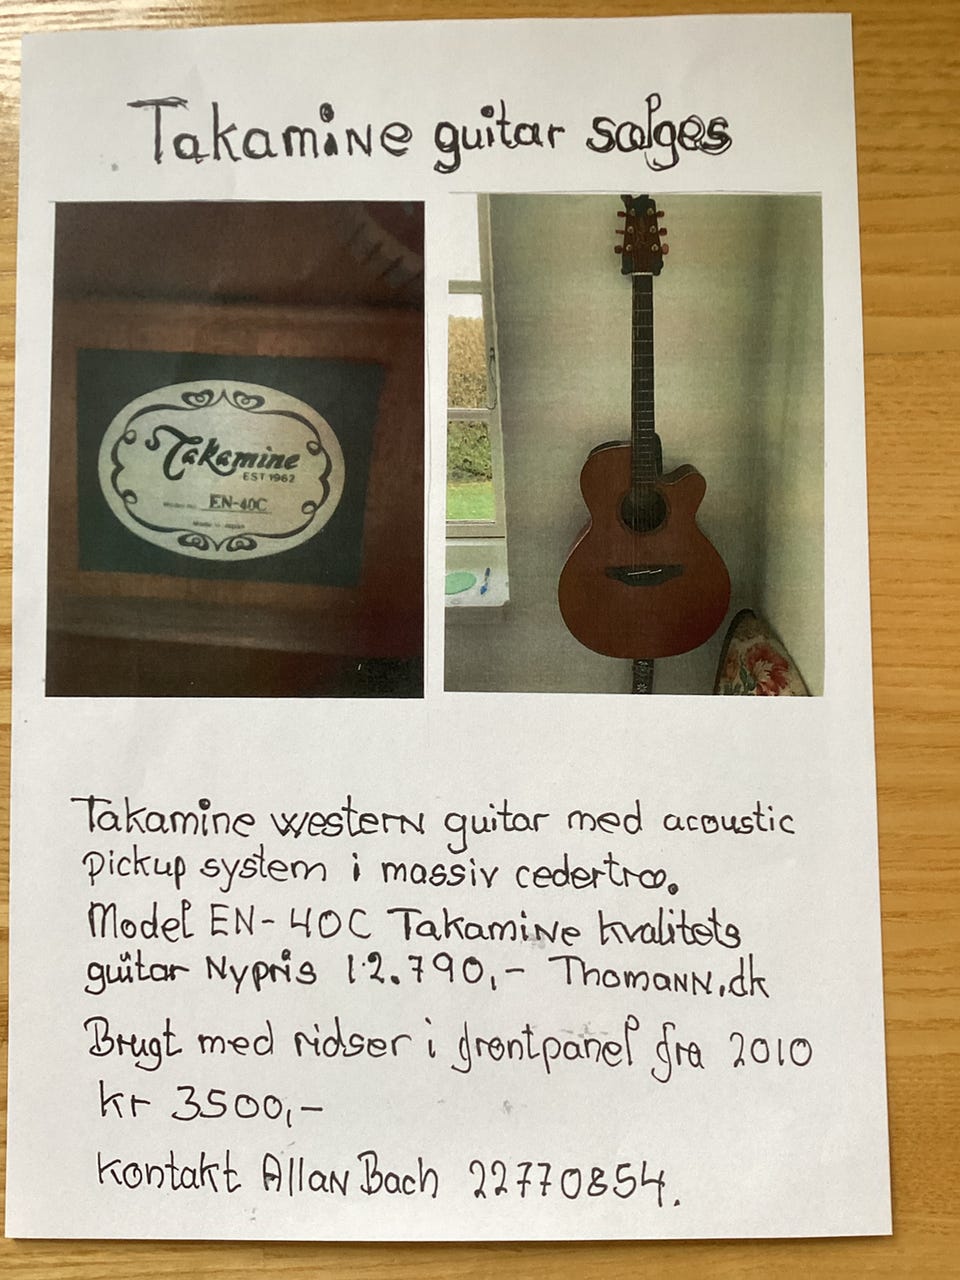 Takamine guitar sælges
Takamine
EST 1962
Model No. EN-40C
Made in Japan
Takamine western guitar med acoustic
pickup system i massiv cedertræ.
Model EN-40C Takamine kvalitets
guitar Nypris 12.790,- Thomann.dk
Brugt med ridser i frontpanel fra 2010
kr 3500,-
Kontakt Allan Bach 22770854.